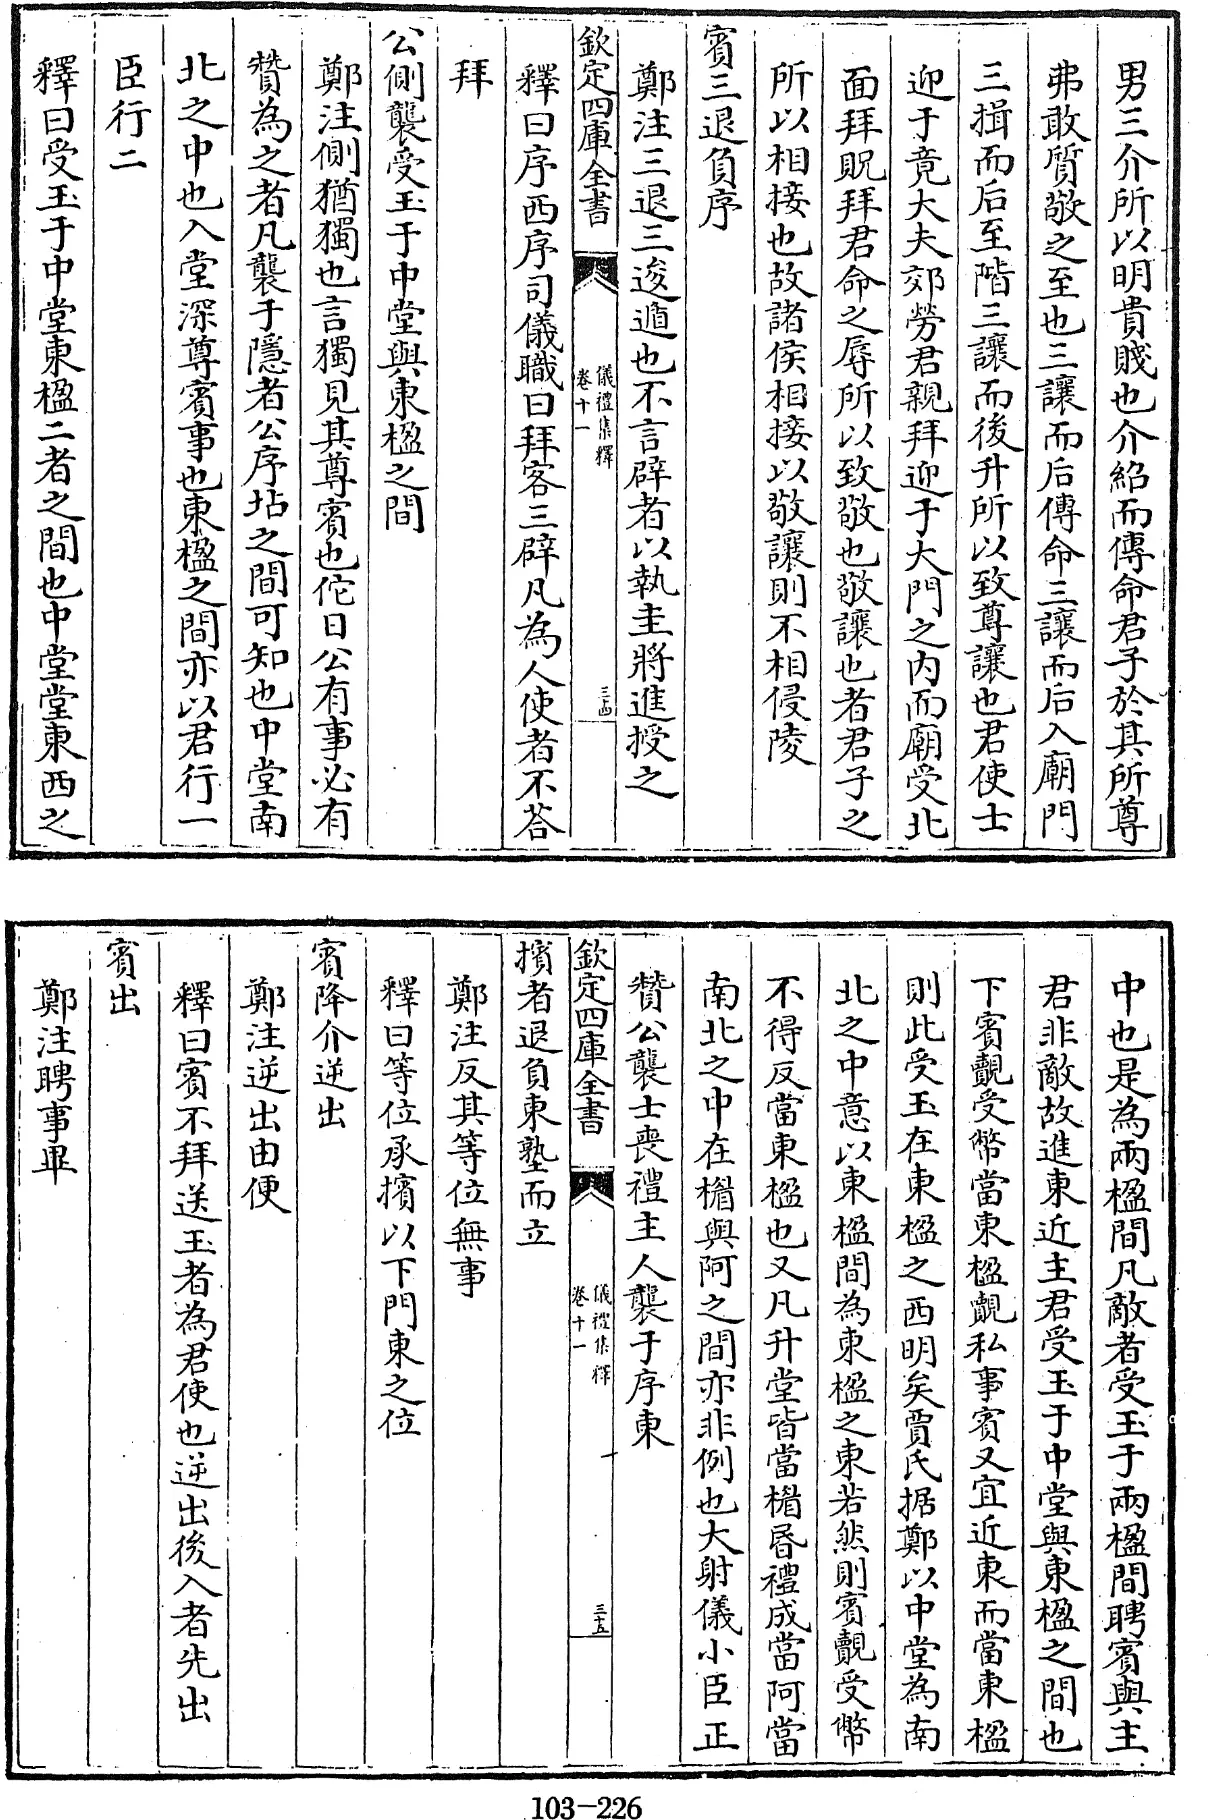 男三介所以明貴賤也介紹而傳命君子於其所尊
弗敢質敬之至也三讓而后傳命三讓而后入廟門
三揖而后至階三讓而後升所以致尊讓也君使士
迎于竟大夫郊勞君親拜迎于大門之内而廟受北
面拜貺拜君命之辱所以致敬也敬讓也者君子之
所以相接也故諸侯相接以敬讓則不相侵陵
賓三退負序
鄭注三退三逡遁也不言辟者以執圭將進授之
欽定四庫全書
儀禮集釋
卷十一
三十四
釋曰序西序司儀職曰拜客三辟凡為人使者不荅
拜
公側襲受玉于中堂與東楹之間
鄭注側猶獨也言獨見其尊賓也佗日公有事必有
贊為之者凡襲于隱者公序坫之間可知也中堂南
北之中也入堂深尊賓事也東楹之間亦以君行一
臣行二
釋曰受玉于中堂東楹二者之間也中堂堂東西之
中也是為兩楹間凡敵者受玉于兩楹間聘賓與主
君非敵故進東近主君受玉于中堂與東楹之間也
下賓覿受幣當東楹覿私事賓又宜近東而當東楹
則此受玉在東楹之西明矣賈氏据鄭以中堂為南
北之中意以東楹間為東楹之東若然則賓覿受幣
不得反當東楹也又凡升堂皆當楣昏禮成當阿當
南北之中在楣與阿之間亦非例也大射儀小臣正
贊公襲士喪禮主人襲于序東
欽定四庫全書
儀禮集釋
卷十一
三十五
擯者退負東塾而立
鄭注反其等位無事
釋曰等位承擯以下門東之位
賓降介逆出
鄭注逆出由便
釋曰賓不拜送玉者為君使也逆出後入者先出
賓出
鄭注聘事畢
103-226